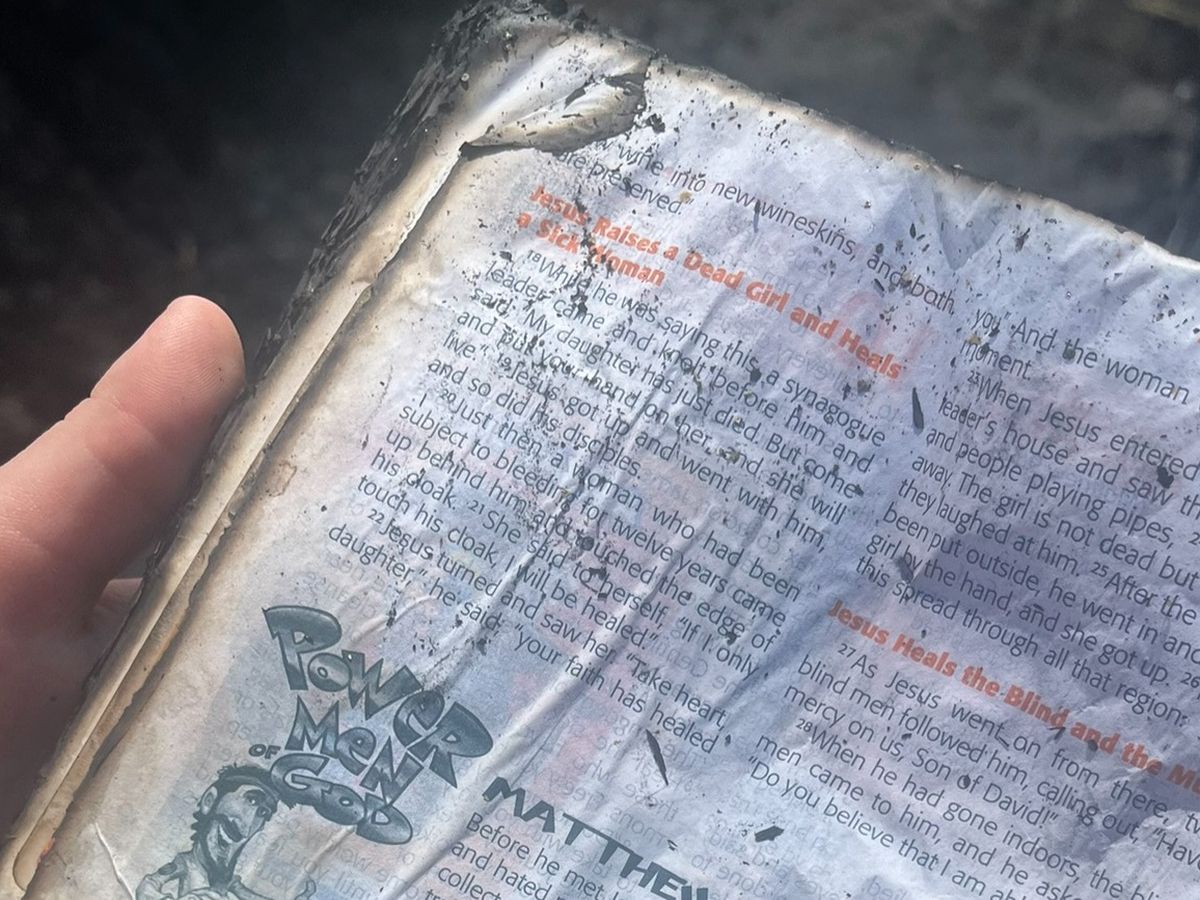 wine into new wineskins, and both
are preserved."
Jesus Raises a Dead Girl and Heals
a Sick Woman
18While he was saying this, a synagogue
leader came and knelt before him and
said, "My daughter has just died. But come
and put your hand on her, and she will
live." 19Jesus got up and went with him,
and so did his disciples.
20Just then a woman who had been
subject to bleeding for twelve years came
up behind him and touched the edge of
his cloak. 21She said to herself, "If I only
touch his cloak, I will be healed."
22Jesus turned and saw her. "Take heart,
daughter," he said, "your faith has healed
POWER
MEN
OF
GOD
MATTHEW
Before he met
and hated
collect
you." And the woman
moment.
23When Jesus entered
leader's house and saw
and people playing pipes,
away. The girl is not dead but
they laughed at him. 25After the
been put outside, he went in and
girl by the hand, and she got up. 26
this spread through all that region.
Jesus Heals the Blind and the
27As Jesus went on from there,
blind men followed him, calling out,
mercy on us, Son of David!"
28When he had gone indoors, the
men came to him, and he
"Do you believe that I am